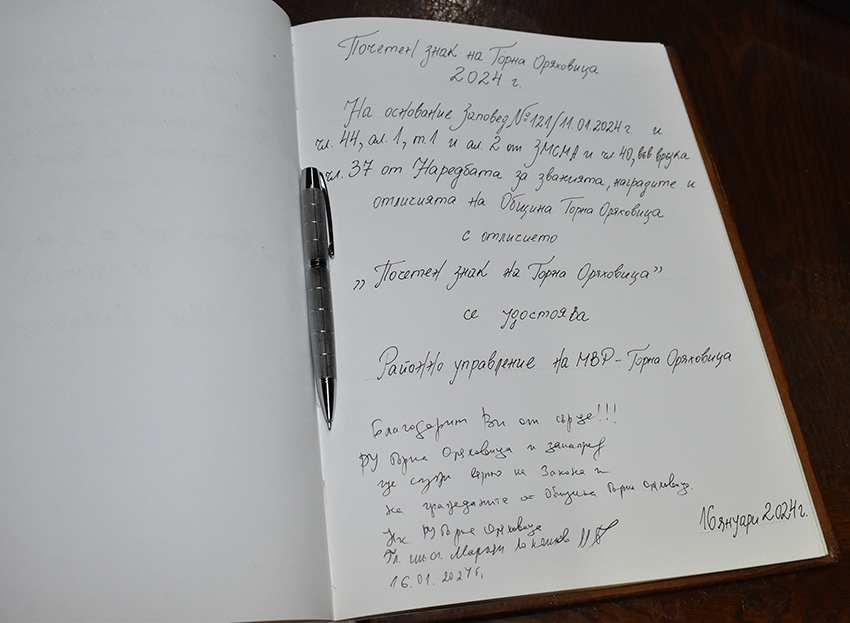 Почетен знак на Горна Оряховица
2024 г.
На основание Заповед №121/11.01.2024 г. и
чл. 44, ал. 1, т. 1 и ал. 2 от ЗМСМА и чл. 40, във връзка
чл. 37 от Наредбата за званията, наградите и
отличията на Община Горна Оряховица
с отличието
„Почетен знак на Горна Оряховица”
се удостоява
Районно управление на МВР - Горна Оряховица
Благодарим Ви от сърце!!!
РУ Горна Оряховица и занапред
ще служи вярно на Закона и
на гражданите от Община Горна Оряховица.
РУ Горна Оряховица
Гл. инсп.
16.01.2024 г.
16 януари 2024 г.